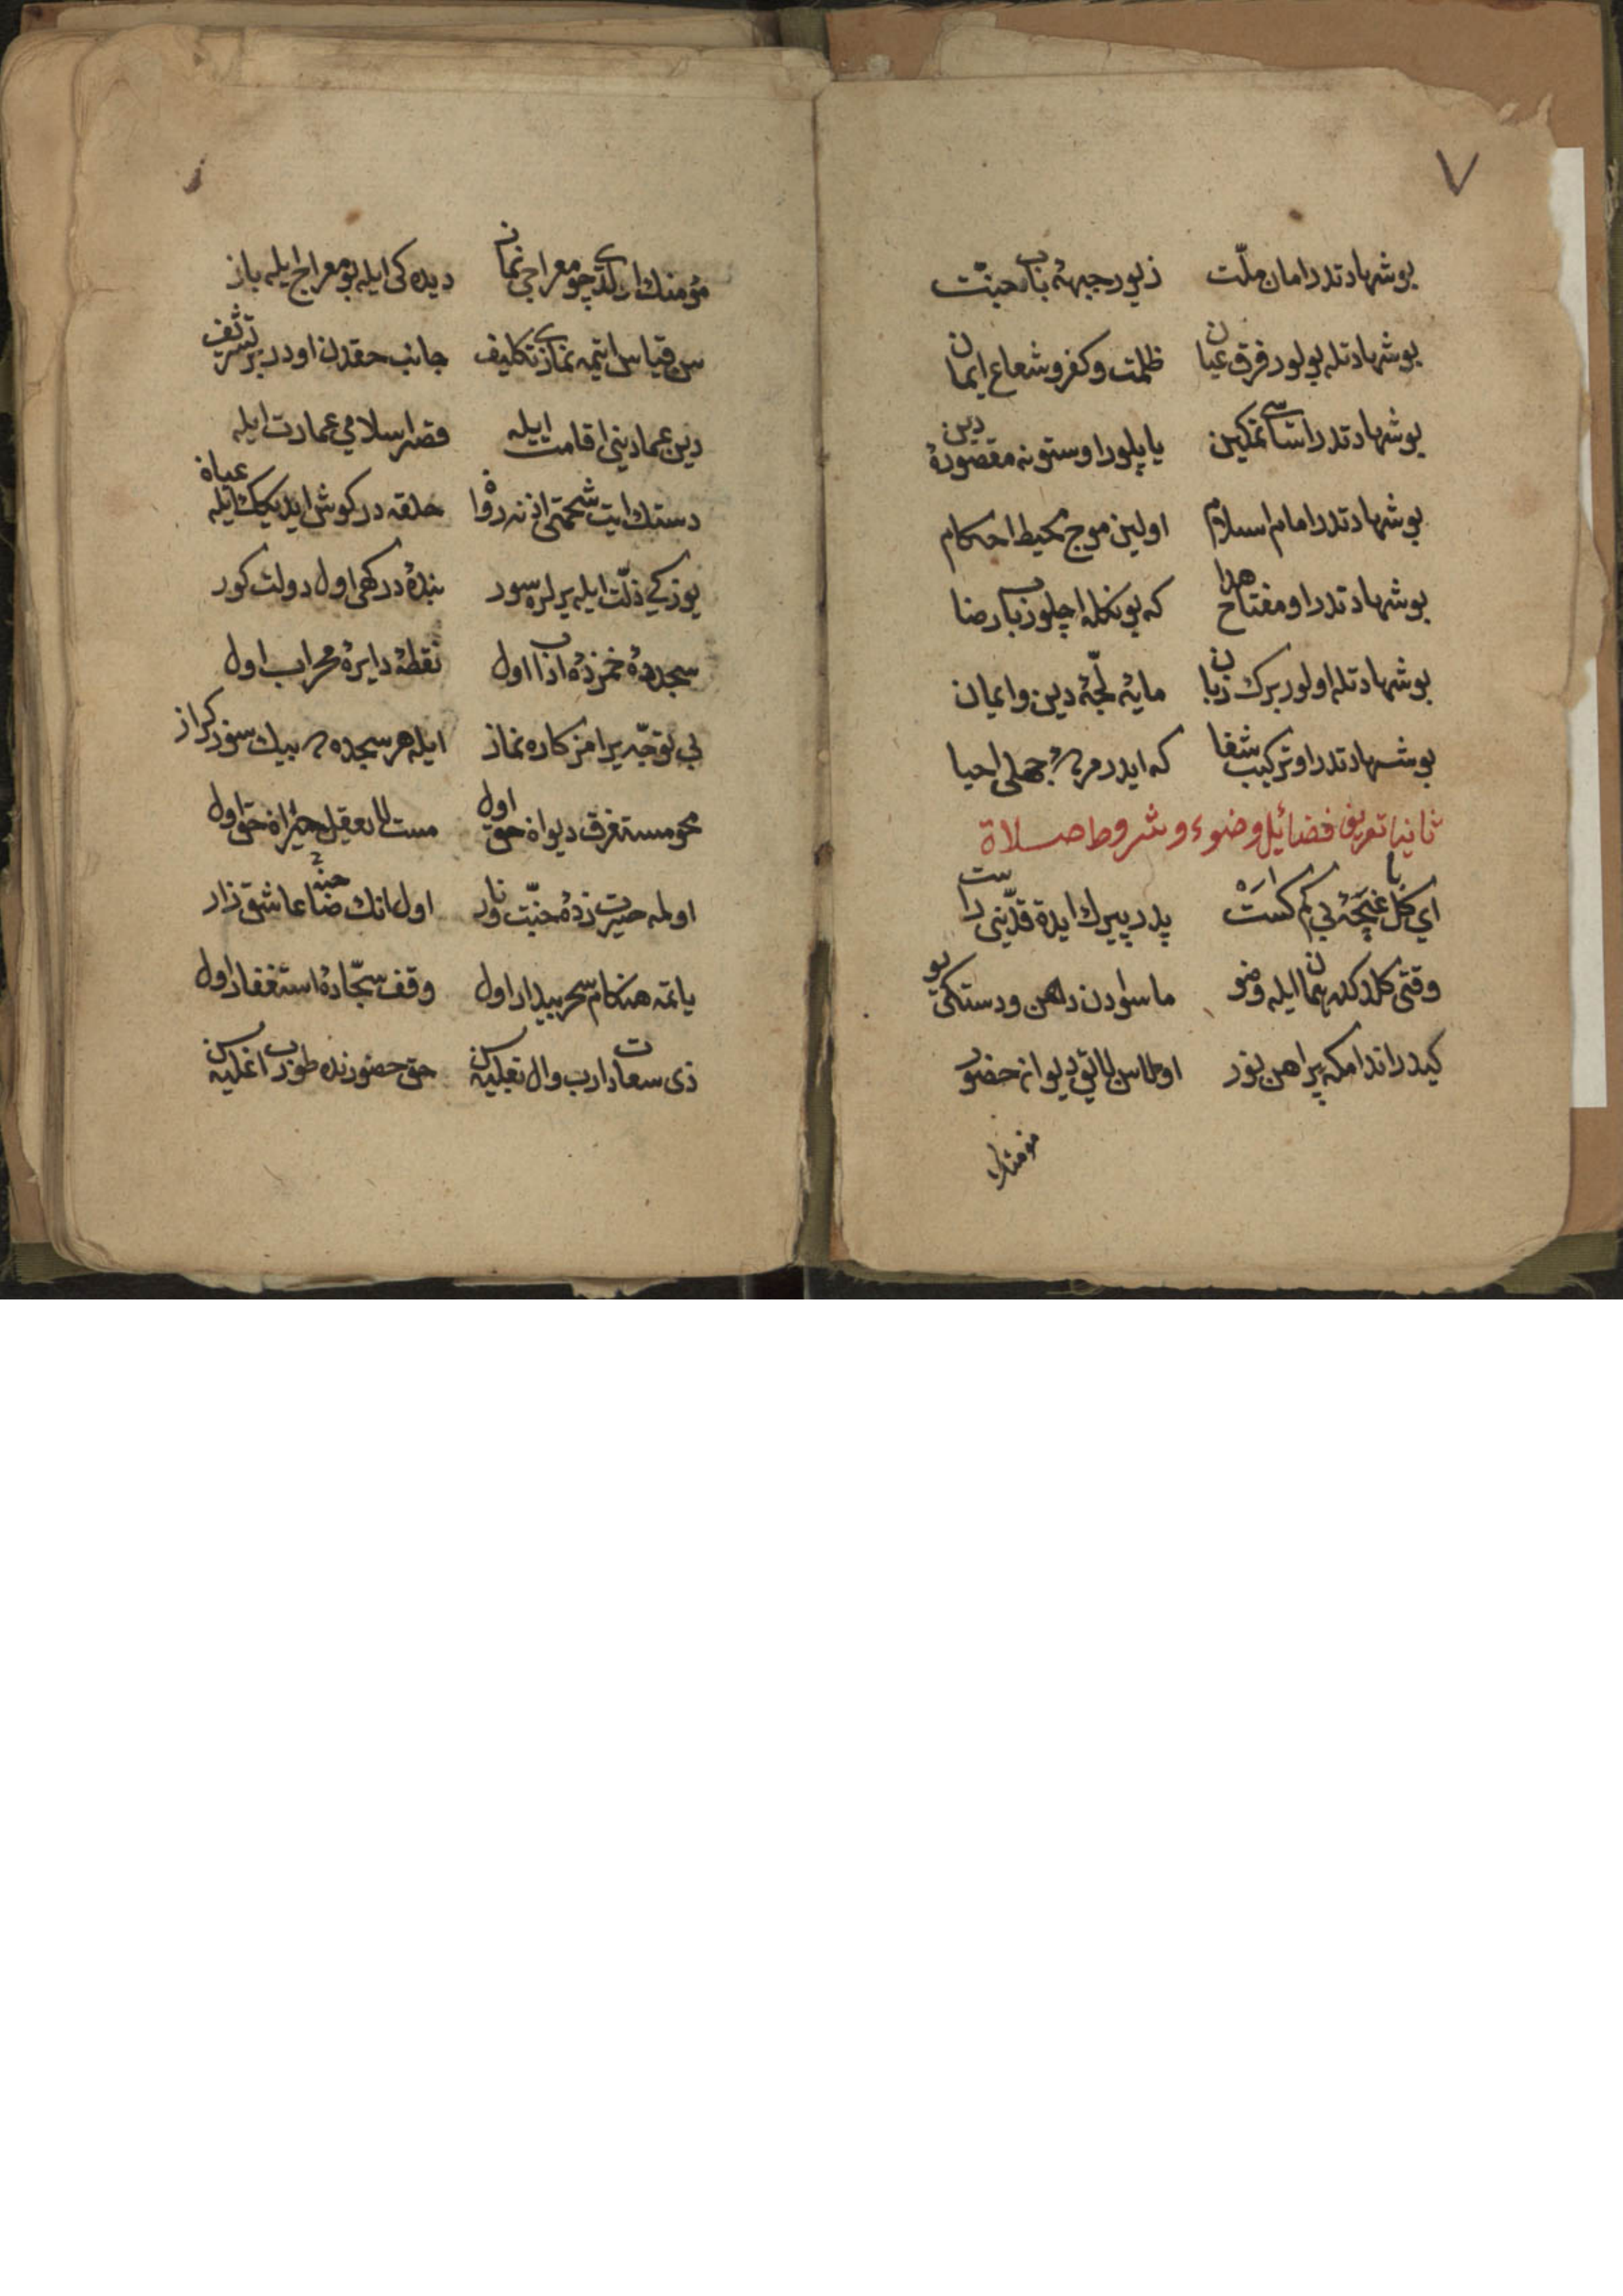 ٧
بو شهادتدر امان ملّت زیور جبههٔ باب جنّت
بو شهادتله بولور فرق عیان ظلمت و کفر و شعاع ایمان
بو شهادتدر اساسی تمکین یاپلور اوستونه مقصورهٔ دین
بو شهادتدر امام اسلام اولین موج محیط احکام
بو شهادتدر او مفتاح هدا که بونکله اچلور باب رضا
بو شهادتله اولور برک زبان مایهٔ لجّهٔ دین و ایمان
بو شهادتدر او ترکیب شفا که ایدر مردهٔ جهلی احیا
ثانیا تعریف فضائیل وضوء و شروط صلاة
ای کل غنچهٔ بی کم کاست پدر پیرک ایده قدّینی راست
وقتی کلدکده همان ایله وضو ماسوادن دهن و دستکی یو
کیدر اندامکه پیراهن نور اوله‌سن لائق دیوان حضور
مؤمنک
مؤمنک اولدی چو معراجی نماز دیده کی ایله بو معراج ایله باز
سن قیاس ایتمه نمازی تکلیف جانب حقدن اودر بر تشریف
دین عمادینی اقامت ایله قصر اسلامی عمارت ایله
حلقه در کوش ایدیجک ایله
یوزکی ذلّت ایله یرلره سور بنده درکهی اول دولت کور
سجده‌ده خمزدهٔ اداب اول نقطهٔ دایرهٔ محراب اول
بی توجّه یرامز کاره نماز ایله هر سجده‌ده بیک سوز کداز
محو مستغرق دیوان حق اول مست لا یعقل حیران حق اول
اولمه حیرت زدهٔ جنّت و نار اول انک عاشق زار
یاتمه هنکام سحر بیدار اول وقف سجّادهٔ استغفار اول
حق حضورنده طورب اغلیه‌سن